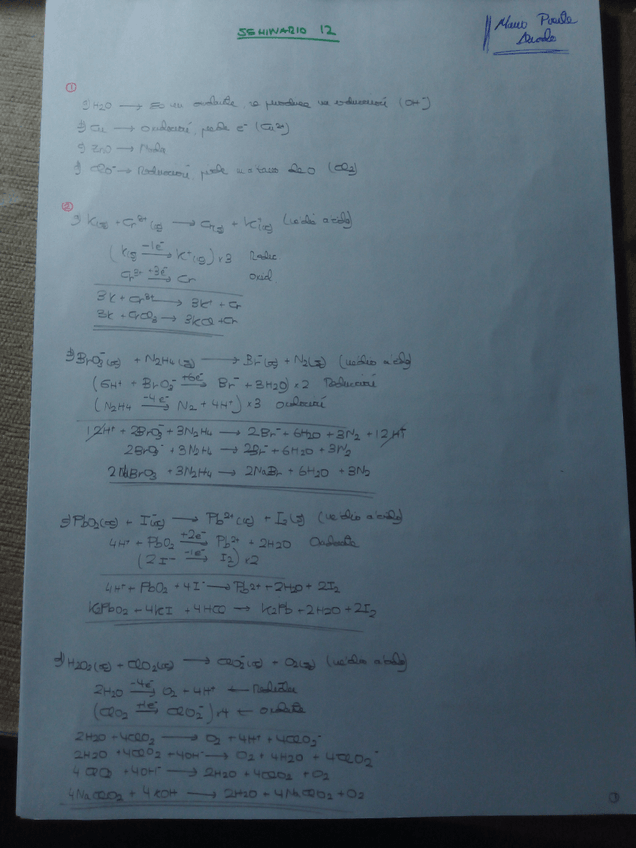 SEMINARIO 12
①
a) H₂O → Es un oxidante, se produce una reducción (OH⁻)
b) Cu → Oxidación, pierde e⁻ (Cu²⁺)
c) ZnO → Nada
d) ClO⁻ → Reducción, pierde O (Cl₂)
②
a) K(s) + Cr³⁺(s) → Cr(s) + K⁺(s) (medio ácido)
(K(s) —-1e⁻→ K⁺(s)) x3 Reduc
Cr³⁺ —-3e⁻→ Cr Oxid
3K + Cr³⁺ → 3K⁺ + Cr
3K + CrCl₃ → 3KCl + Cr
b) BrO₃⁻(s) + N₂H₄(g) → Br⁻(s) + N₂(g) (medio ácido)
(6H⁺ + BrO₃⁻ —+6e⁻→ Br⁻ + 3H₂O) x2 Reducción
(N₂H₄ —-4e⁻→ N₂ + 4H⁺) x3 Oxidación
12H⁺ + 2BrO₃⁻ + 3N₂H₄ → 2Br⁻ + 6H₂O + 3N₂ + 12H⁺
2BrO₃⁻ + 3N₂H₄ → 2Br⁻ + 6H₂O + 3N₂
2NaBrO₃ + 3N₂H₄ → 2NaBr + 6H₂O + 3N₂
c) PbO₂(s) + I⁻(s) → Pb²⁺(s) + I₂(s) (medio ácido)
4H⁺ + PbO₂ —+2e⁻→ Pb²⁺ + 2H₂O Oxidante
(2I⁻ —-1e⁻→ I₂) x2
4H⁺ + PbO₂ + 4I⁻ → Pb²⁺ + 2H₂O + 2I₂
K₂PbO₂ + 4KI + 4HCl → K₂Pb + 2H₂O + 2I₂
d) H₂O₂(s) + ClO₂(s) → ClO₂⁻(s) + O₂(g) (medio ácido)
2H₂O —-4e⁻→ O₂ + 4H⁺ ←
(ClO₂ —+1e⁻→ ClO₂⁻) x4 ← oxidante
2H₂O + 4ClO₂ → O₂ + 4H⁺ + 4ClO₂⁻
2H₂O + 4ClO₂ + 4OH⁻ → O₂ + 4H₂O + 4ClO₂⁻
4ClO₂ + 4OH⁻ → 2H₂O + 4ClO₂ + O₂
4NaClO₂ + 4KOH → 2H₂O + 4NaClO₂ + O₂
①